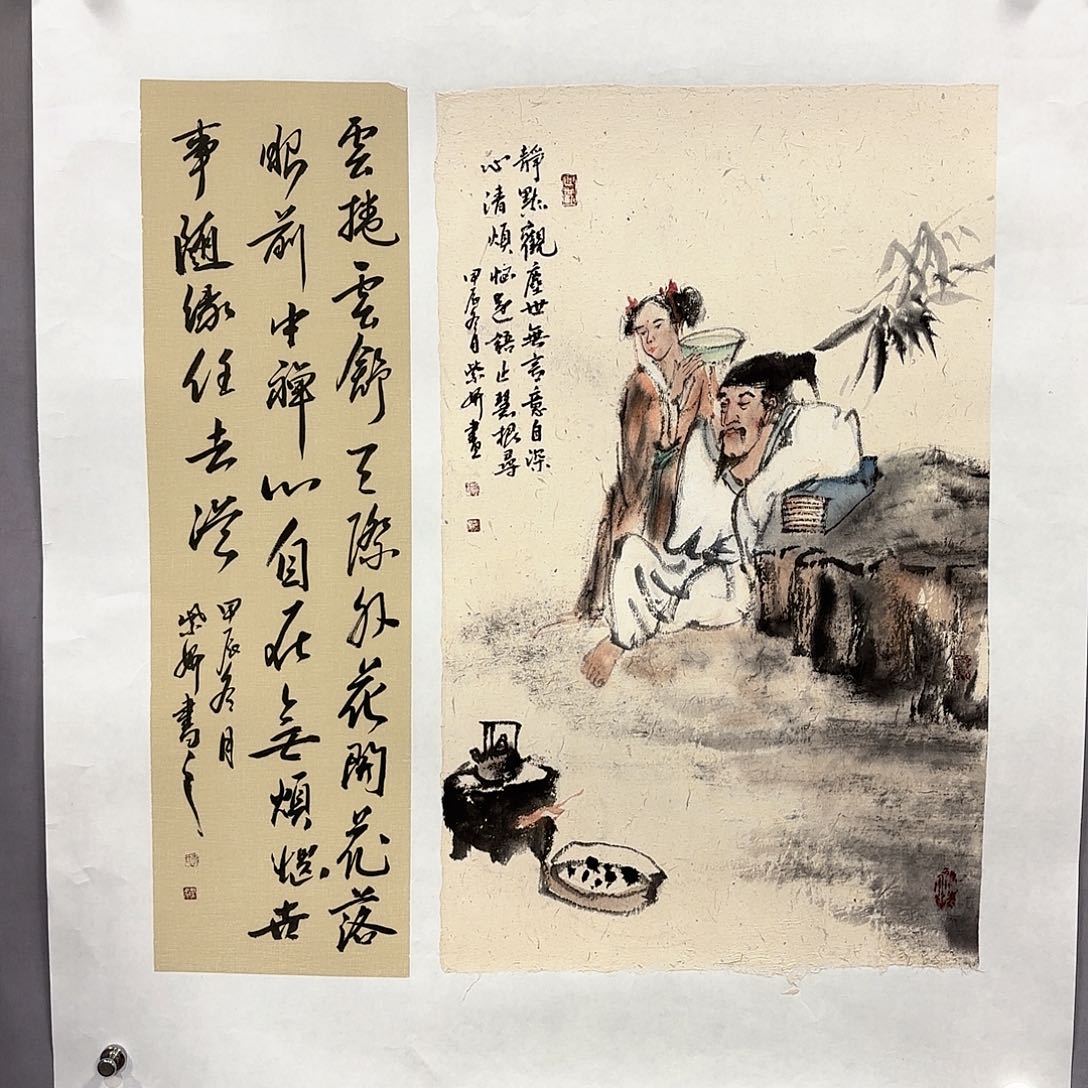 靜默觀塵世無言意自深
心清煩惱遠語止慧根尋
甲辰冬月紫妍畫
雲捲雲舒天際外花開花落
眼前中禪心自在無煩惱世
事隨緣任去從
甲辰冬月
紫妍書之